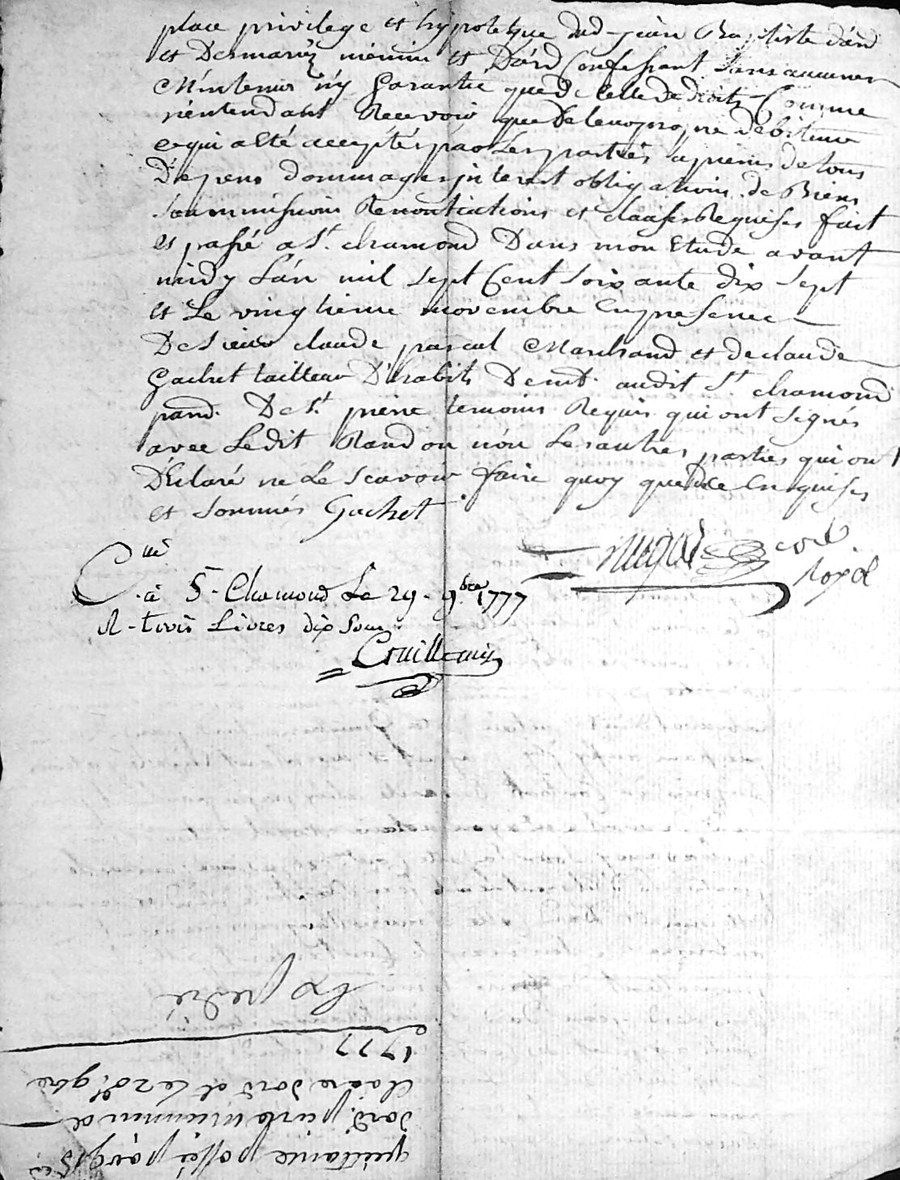 place privilege et hypoteque dud jean Baptiste dard
et Desmarez mémin et Dard Confessant sans aucunes
Mintenüe n'y Garantie que de celle de droits Comme
n'entendant Recevoir que de leur propre débiteur
ce qui a été accepté par les parties a peine de tous
Depens dommages interest obligations de Biens
soummissions Renontiations et clauses Requises fait
et passé a St. chamond Dans mon Etude avant
midy L'an mil sept Cent soixante dix sept
et Le vingtieme novembre En presence
De sieur claude pascal Marchand et de claude
Gachet tailleur D'habits Demt. audit St chamond
parr. De St. pierre temoins Requis qui ont signés
avec Ledit Randon non Les autres parties qui ont
Déclaré ne Le scavoir faire quoy que de Enquises
et sommés Gachet
not royal
Cllé
à St. Chamond Le 29. 9bre 1777
R. trois Livres dix sous
quittance passée par
dard
claire dard et Le 20e. 9bre
1777
Expedié